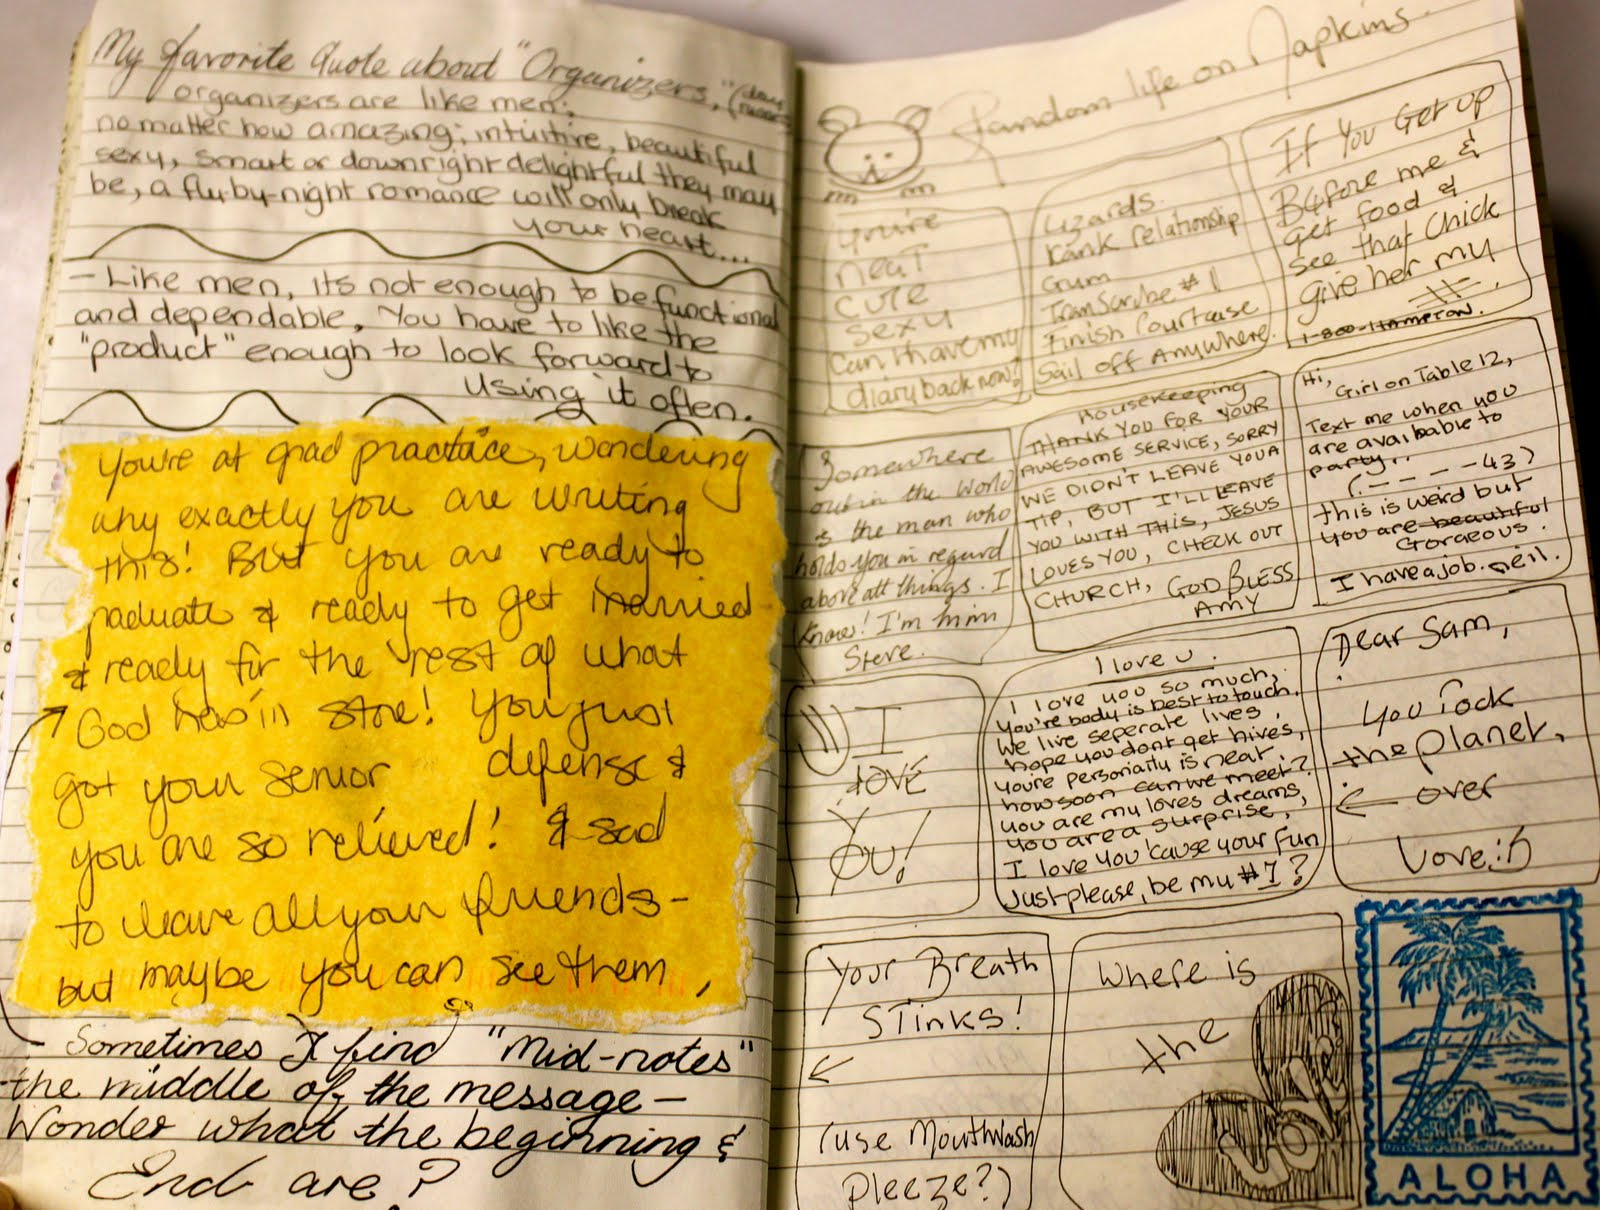 My favorite Quote about "Organizers,"
organizers are like men:
no matter how amazing; intuitive, beautiful
sexy, smart or downright delightful they may
be, a fly-by-night romance will only break
your heart...
- Like men, its not enough to be functional
and dependable, You have to like the
"product" enough to look forward to
using it often.
You're at grad practice, wondering
why exactly you are writing
this! But you are ready to
graduate & ready to get married
& ready for the rest of what
God has in store! You just
got your senior defense &
you are so relieved! & sad
to leave all your friends-
but maybe you can see them,
- Sometimes I find "Mid-notes"
the middle of the message -
Wonder what the beginning &
End are?
Random life on Napkins.
You're
neat
cute
sexy
Can I have my
diary back now?
Lizards.
Rank relationship
Gum
Transcribe #1
Finish Courtcase
Sail off Anywhere.
If You Get up
Before me &
get food &
see that Chick
Give her my
#.
1-800-HAMPTON.
Somewhere
out in the World
is the man who
holds you in regard
above all things. I
Know! I'm him
Steve.
Housekeeping
THANK YOU FOR YOUR
AWESOME SERVICE, SORRY
WE DIDN'T LEAVE YOU A
TIP, BUT I'LL LEAVE
YOU WITH THIS, JESUS
LOVES YOU, CHECK OUT
CHURCH, GOD BLESS
AMY
Hi,
Girl on Table 12,
Text me when you
are available to
party..
(- - - -43)
this is weird but
you are beautiful
Gorgeous.
I have a job. Neil.
I
LOVE
YOU!
I love u.
I love you so much,
You're body is best to touch.
We live seperate lives,
hope you dont get hives,
You're personality is neat
how soon can we meet?
You are my loves dreams,
You are a surprise,
I love you 'cause your fun
Just please, be my #1?
Dear Sam,
You rock
the planet,
← over
Love :D
Your Breath
STinks!
←
(use Mouthwash
Pleeze?)
Where is
the
ALOHA